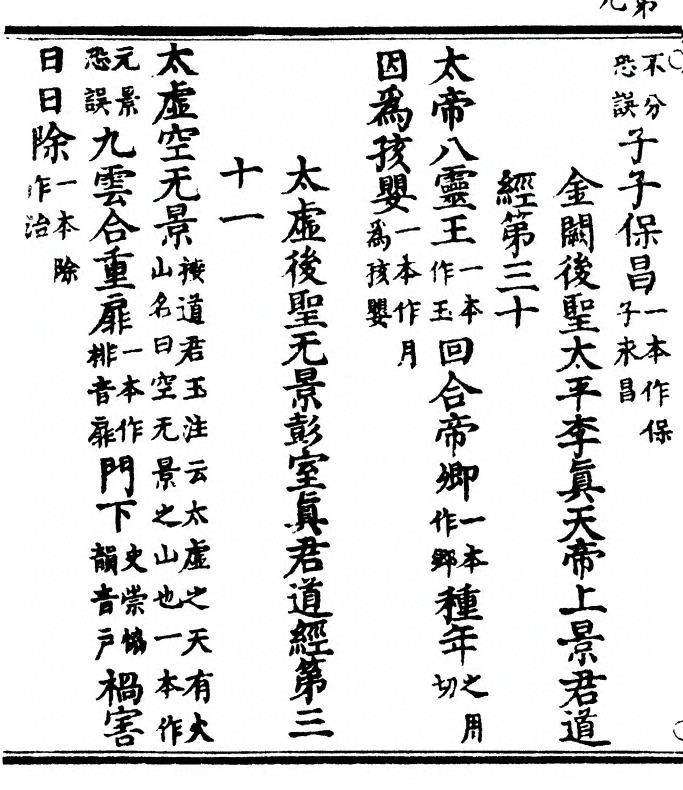 不分恐誤子子保昌一本作保子未昌
金闕後聖太平李眞天帝上景君道
經第三十
太帝八靈王一本作玉回合帝卿一本作鄉種年之用切
因爲孩嬰一本作月爲孩嬰
太虛後聖无景彭室眞君道經第三
十一
太虛空无景按道君玉注云太虛之天有火山名曰空无景之山也一本作
元景恐誤九雲合重扉一本作排音扉門下史崇協韻音戶禍害
日日除一本除作治